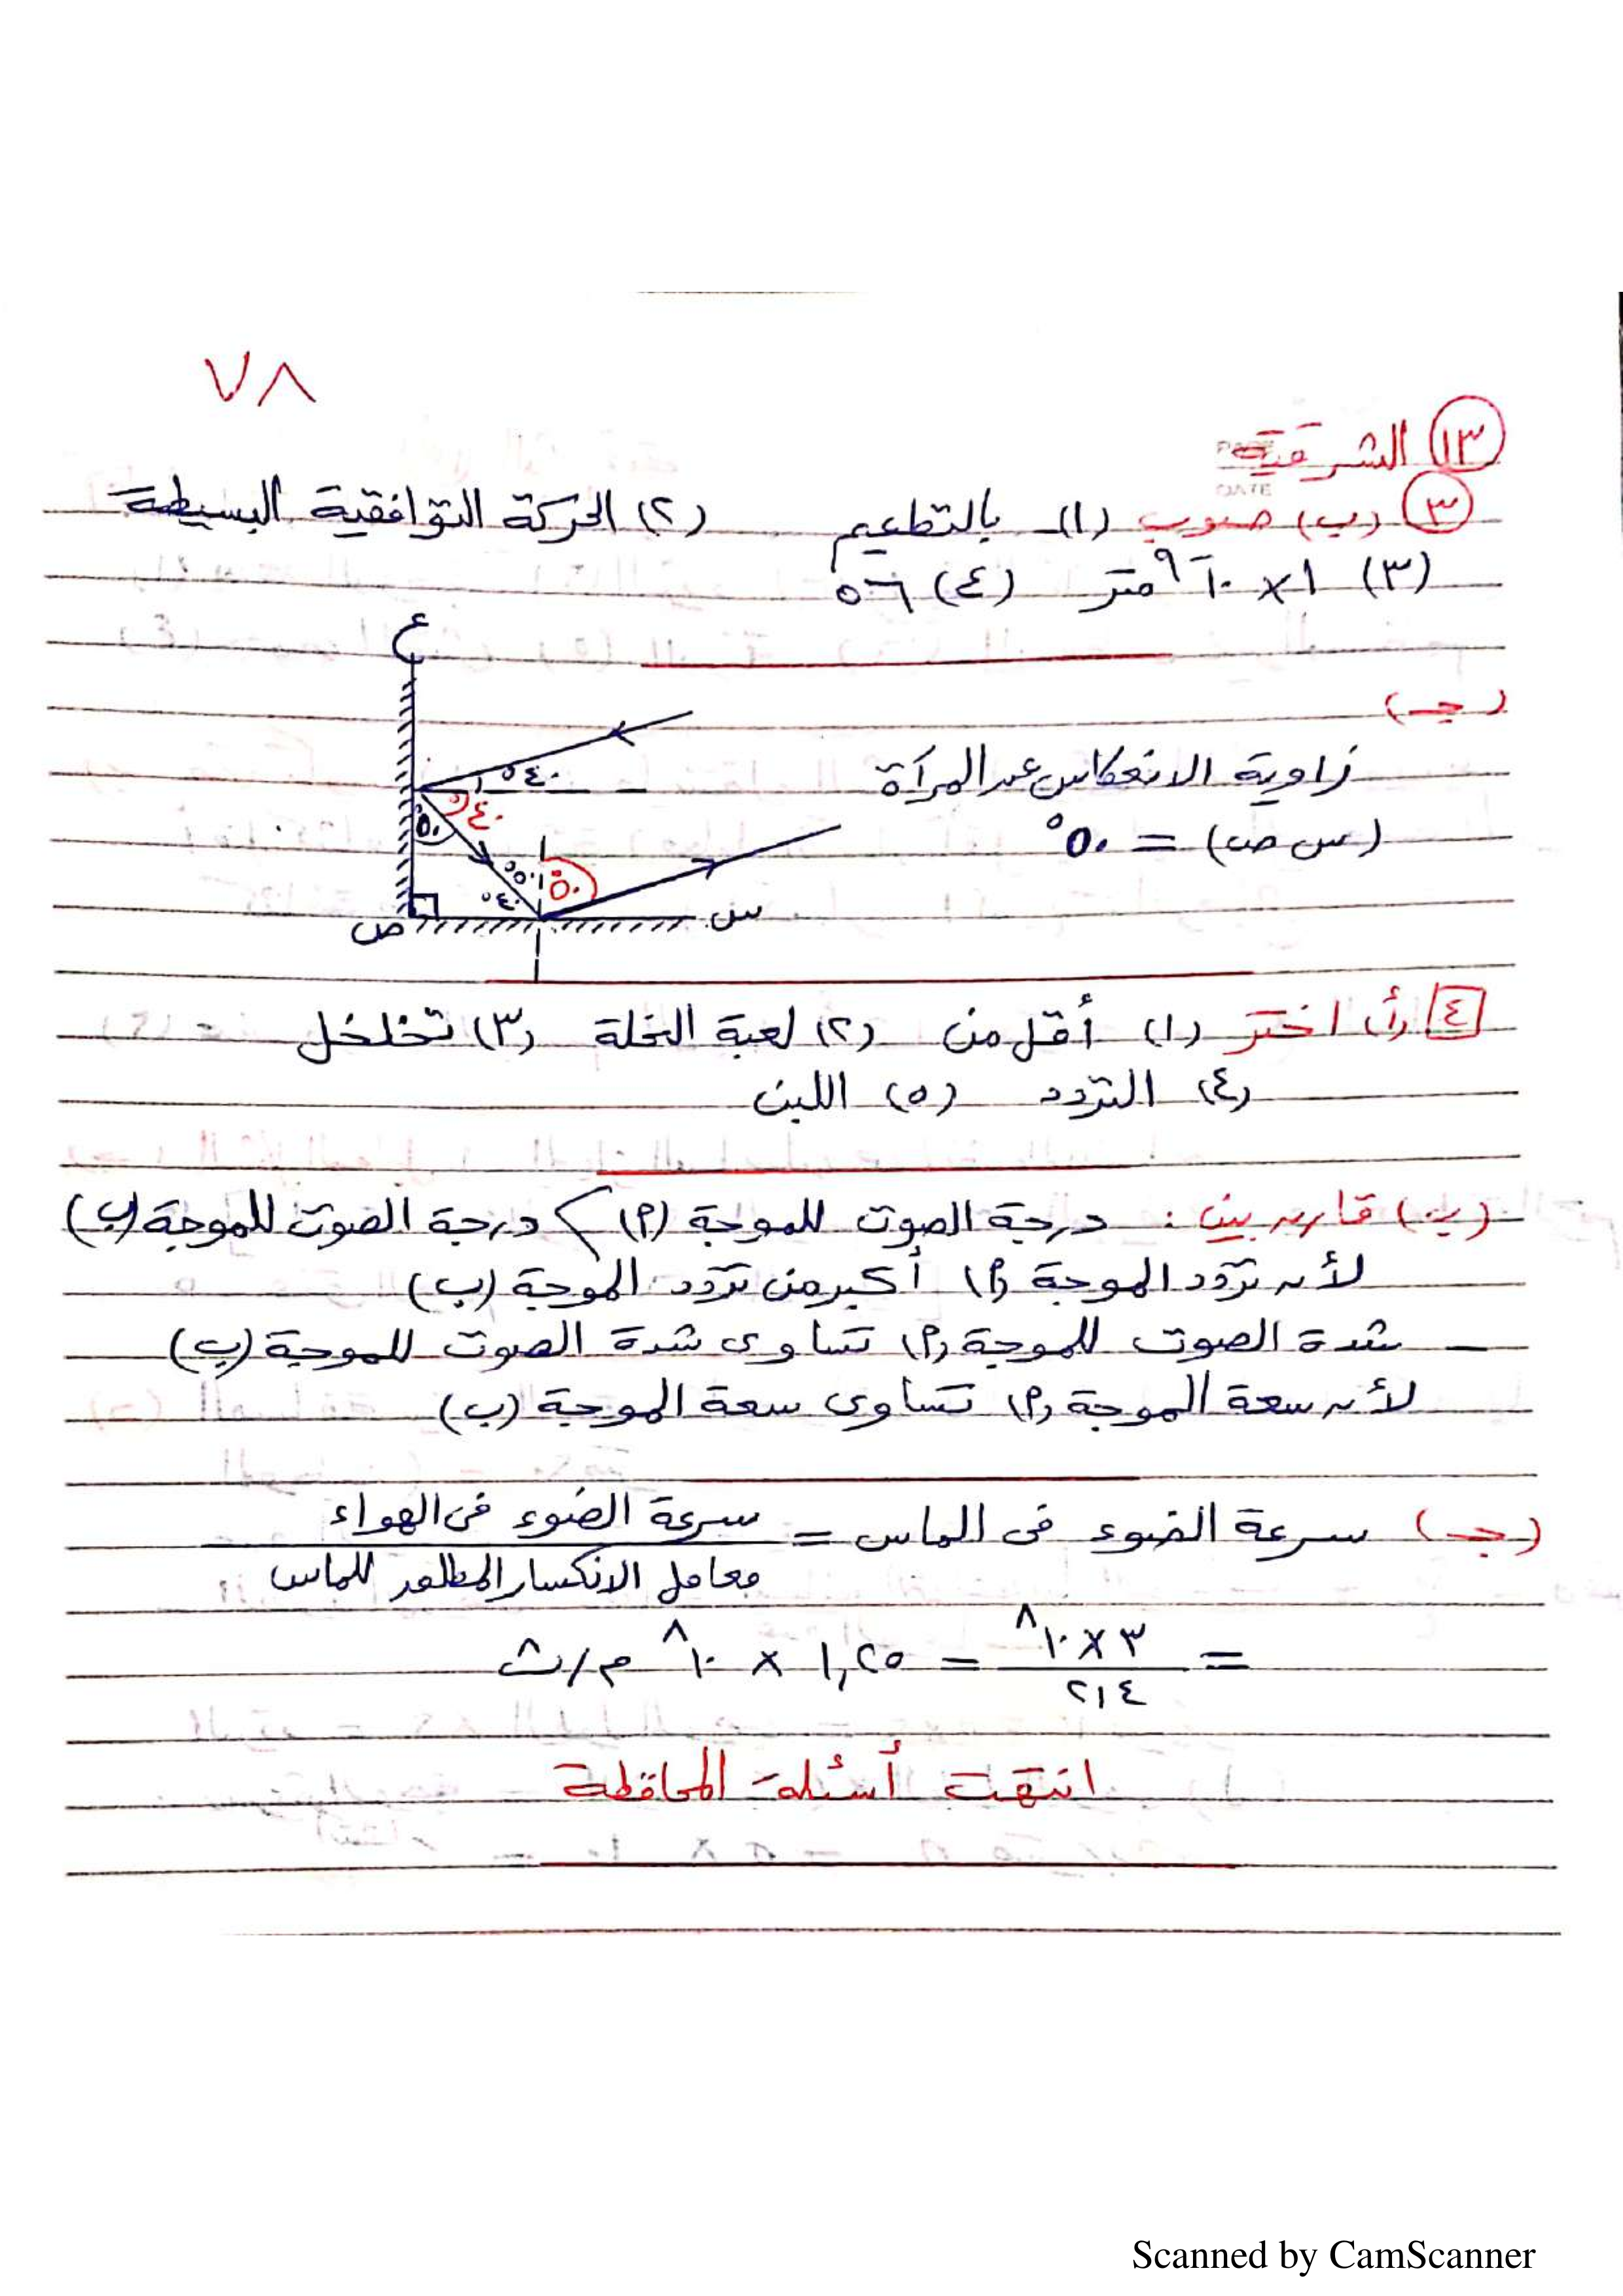 ٧٨
١٣ الشرقية
PAGE
DATE
٣ (ب) صوب (١) بالتطعيم (٢) الحركة التوافقية البسيطة
(٣) ١ × ١٠⁻⁹ متر (٤) ٥٦
(جـ)
زاوية الانعكاس عن المرآة
(س ص) = ٥٠°
ع
٤٠°
٤٠°
٥٠°
٥٠° ٥٠°
٤٠°
ص س
٤ (أ) اختر (١) أقل من (٢) لعبة النحلة (٣) تخلخل
(٤) التردد (٥) اللبن
(ب) قارن بين : درجة الصوت للموجة (أ) > درجة الصوت للموجة (ب)
لأن تردد الموجة (أ) أكبر من تردد الموجة (ب)
ـ شدة الصوت للموجة (أ) تساوى شدة الصوت للموجة (ب)
لأن سعة الموجة (أ) تساوى سعة الموجة (ب)
(جـ) سرعة الضوء فى الماس = سرعة الضوء فى الهواء
معامل الانكسار المطلق للماس
= ٣ × ١٠⁸ / ٢,٤ = ١,٢٥ × ١٠⁸ م/ث
انتهت أسئلة المحافظة
Scanned by CamScanner